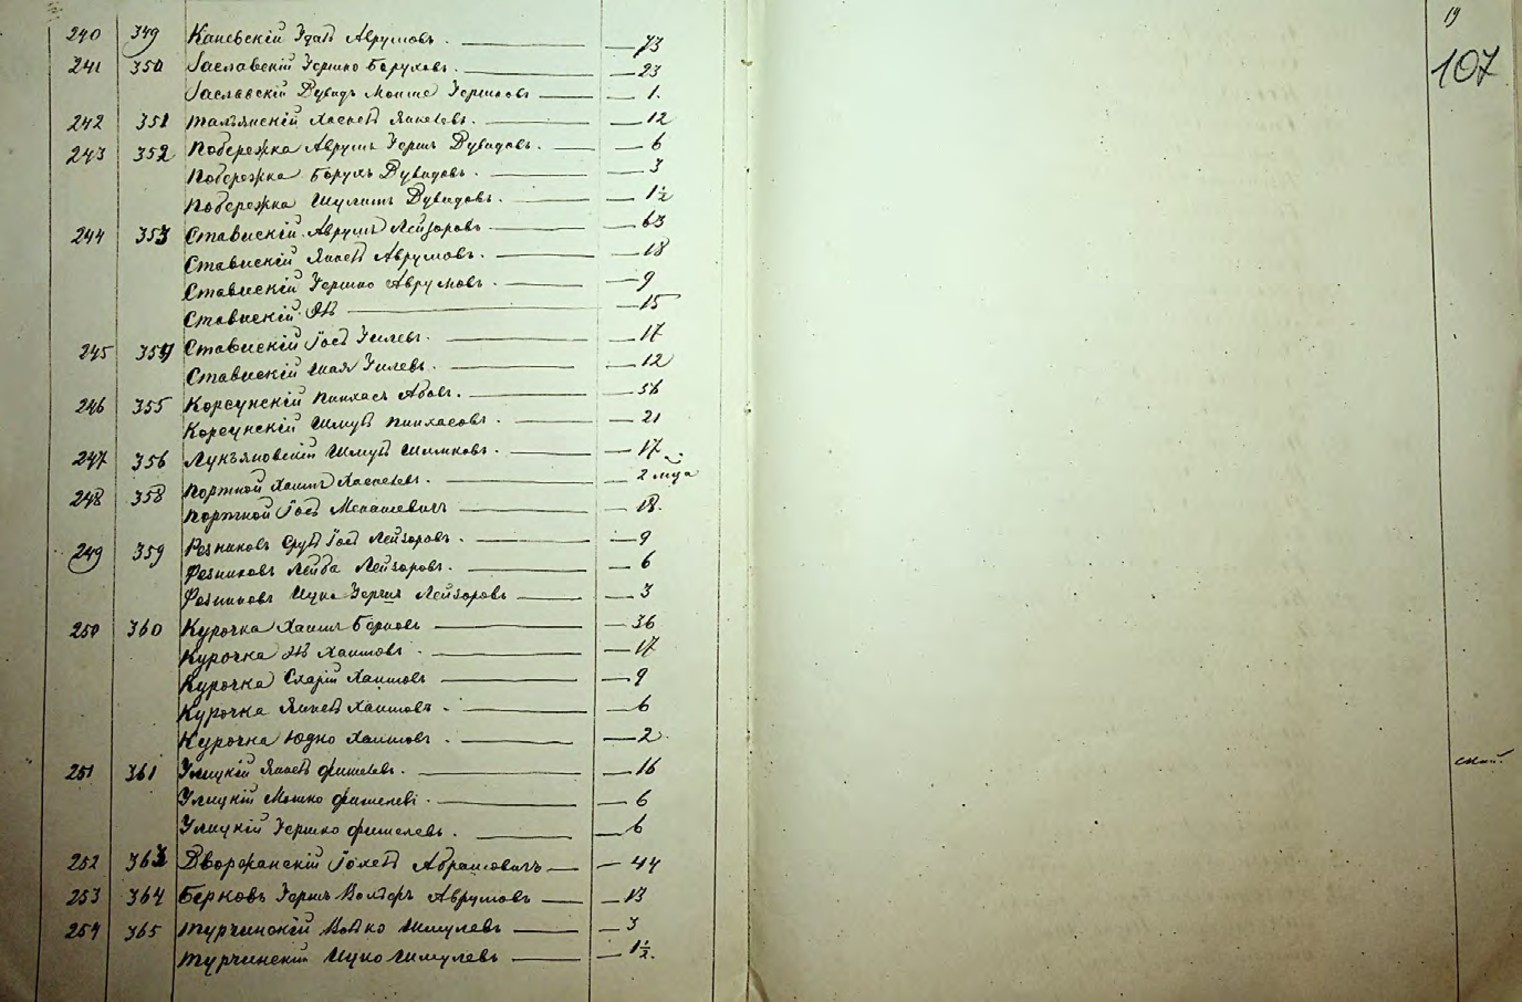 19
107
240 349 Каневскій Удатъ Аврумовъ. — 73
241 350 Заславскій Гершко Боруховъ. — 23
Заславскій Дувидъ Мошко Гершковъ — 1.
242 351 Тальянскій Хаскель Янкелевъ. — 12
243 352 Побережка Аврумъ Гершъ Дувидовъ. — 6
Побережка Борухъ Дувидовъ. — 3
Побережка Шулимъ Дувидовъ. — 1½
244 353 Ставискій Аврумъ Лейзоровъ — 63
Ставискій Янкель Аврумовъ. — 18
Ставискій Гершко Аврумовъ. — 9
Ставискій — 15
245 354 Ставискій Іось Гилевъ. — 17
Ставискій Шая Гилевъ. — 12
246 355 Корсунскій Пинхасъ Абовъ. — 56
Корсунскій Шмуль Пинхасовъ. — 21
247 356 Лукъяновскій Шмуль Шимковъ. — 17.
248 358 Портной Хаимъ Хаскелевъ. — 2
Портной Іось Менашевичъ — 18.
249 359 Резниковъ Сруль Іось Лейзоровъ. — 9
Резниковъ Лейба Лейзоровъ. — 6
Резниковъ Ицко Гершъ Лейзоровъ — 3
250 360 Курочка Хаимъ Берковъ — 36
Курочка Хаимовъ. — 17
Курочка Схарій Хаимовъ — 9
Курочка Янкель Хаимовъ. — 6
Курочка Юдко Хаимовъ. — 2.
251 361 Улицкій Янкель Фишелевъ. — 16
Улицкій Мошко Фишелевъ. — 6
Улицкій Гершко Фишелевъ. — 6
252 363 Іойлель Абрамовичъ — 44
253 364 Берковъ Гершъ Вольфъ Аврумовъ — 13
254 365 Турчинскій Волько Шмулевъ — 3
Турчинскій Ицко Шмулевъ — 1½.